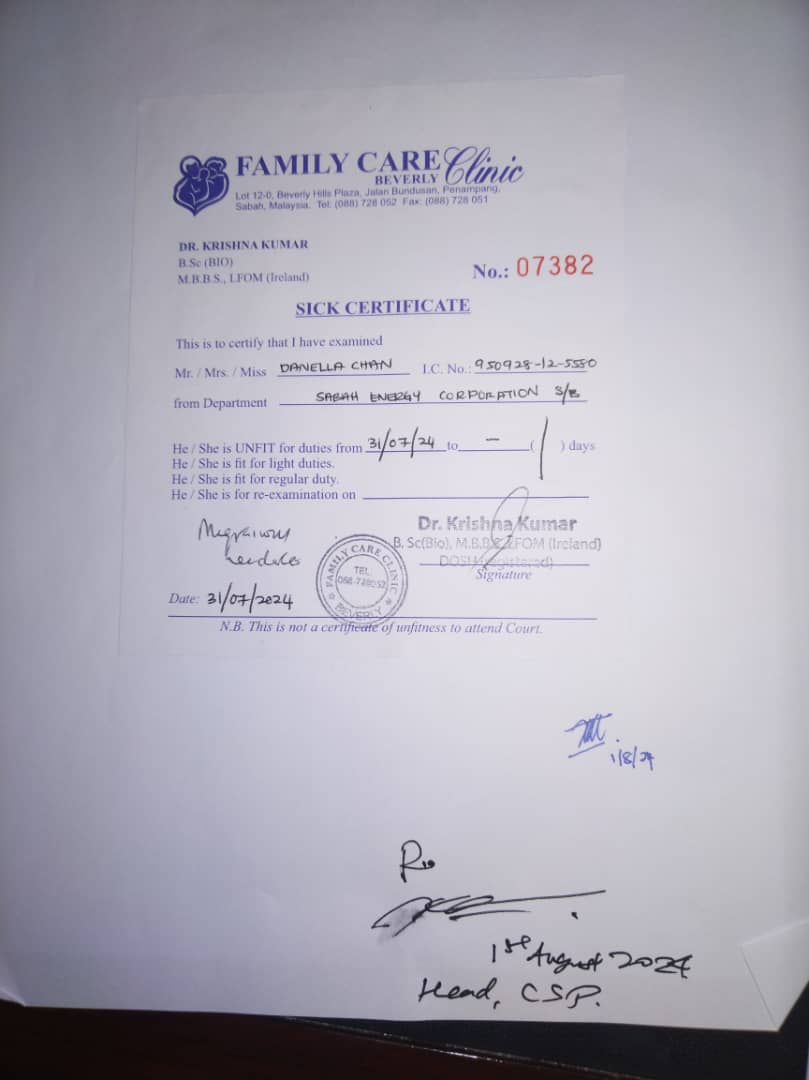 FAMILY CARE Clinic
BEVERLY
Lot 12-0, Beverly Hills Plaza, Jalan Bundusan, Penampang,
Sabah, Malaysia. Tel: (088) 728 052 Fax: (088) 728 051
DR. KRISHNA KUMAR
B.Sc (BIO)
M.B.B.S., LFOM (Ireland)
No.: 07382
SICK CERTIFICATE
This is to certify that I have examined
Mr. / Mrs. / Miss DANELLA CHAN I.C. No.: 950928-12-5580
from Department SABAH ENERGY CORPORATION S/B
He / She is UNFIT for duties from 31/07/24 to - ( 1 ) days
He / She is fit for light duties.
He / She is fit for regular duty.
He / She is for re-examination on
Dr. Krishna Kumar
B. Sc(Bio), M.B.B.S, LFOM (Ireland)
DOSH (registered)
Signature
FAMILY CARE CLINIC
TEL
088-728052
BEVERLY
Date: 31/07/2024
N.B. This is not a certificate of unfitness to attend Court.
1/8/24
1st August 2024
Head, CSP.